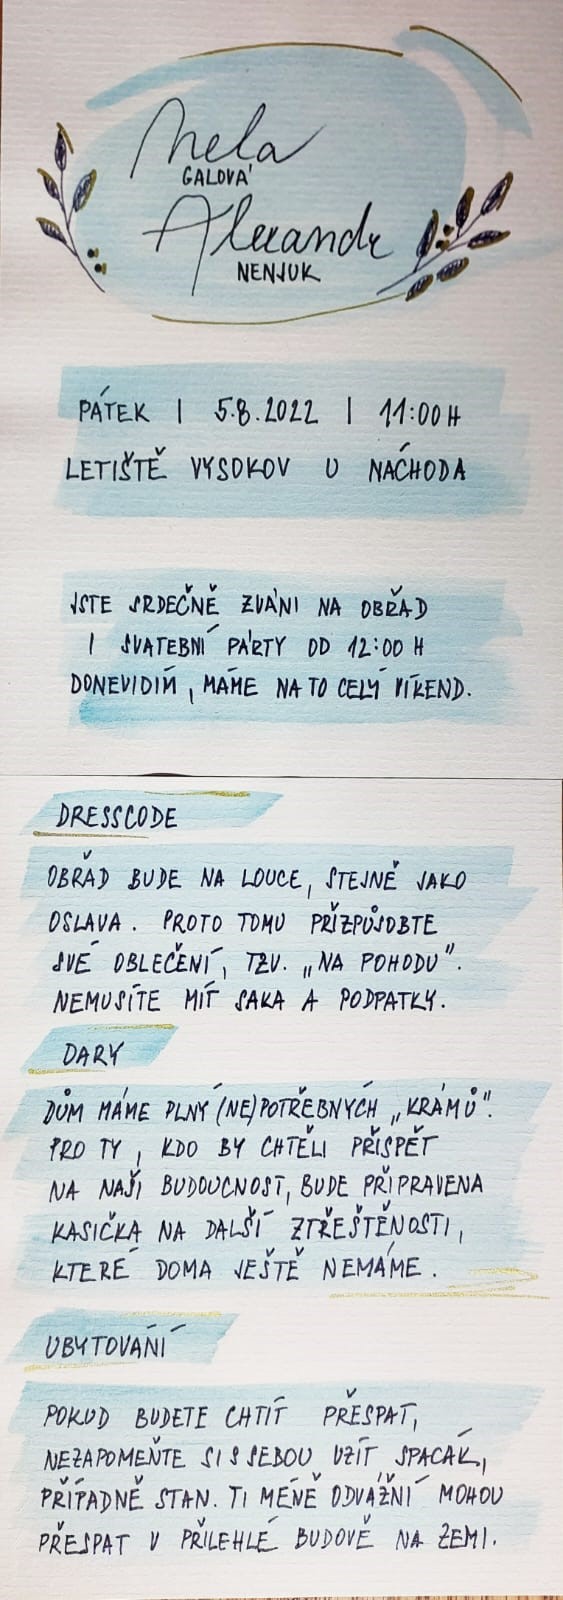 Nela
GALOVÁ
Alexandr
NENJUK
PÁTEK | 5.8.2022 | 11:00 H
LETIŠTĚ VYSOKOV U NÁCHODA
JSTE SRDEČNĚ ZVÁNI NA OBŘAD
I SVATEBNÍ PÁRTY OD 12:00 H
DONEVIDÍM, MÁME NA TO CELÝ VÍKEND.
DRESSCODE
OBŘAD BUDE NA LOUCE, STEJNĚ JAKO
OSLAVA. PROTO TOMU PŘIZPŮSOBTE
SVÉ OBLEČENÍ, TZV. „NA POHODU“.
NEMUSÍTE MÍT SAKA A PODPATKY.
DARY
DŮM MÁME PLNÝ (NE)POTŘEBNÝCH „KRÁMŮ“.
PRO TY, KDO BY CHTĚLI PŘISPĚT
NA NAŠI BUDOUCNOST, BUDE PŘIPRAVENA
KASIČKA NA DALŠÍ ZTŘEŠTĚNOSTI,
KTERÉ DOMA JEŠTĚ NEMÁME.
UBYTOVÁNÍ
POKUD BUDETE CHTÍT PŘESPAT,
NEZAPOMEŇTE SI S SEBOU VZÍT SPACÁK,
PŘÍPADNĚ STAN. TI MÉNĚ ODVÁŽNÍ MOHOU
PŘESPAT V PŘILEHLÉ BUDOVĚ NA ZEMI.